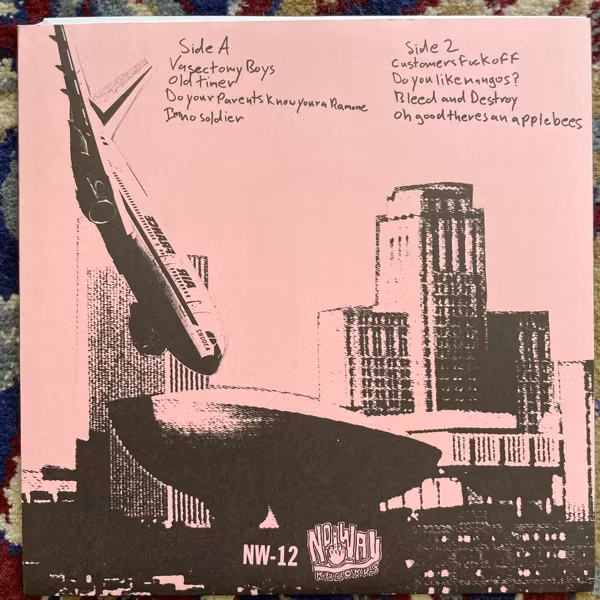 Side A
Vasectomy Boys
Old timer
Do your Parents know your a Ramone
Im no soldier
Side 2
Customers Fuck off
Do you like mangos?
Bleed and Destroy
oh good theres an applebees
AIR FRANCE
NW-12
NO WAY
RECORDS